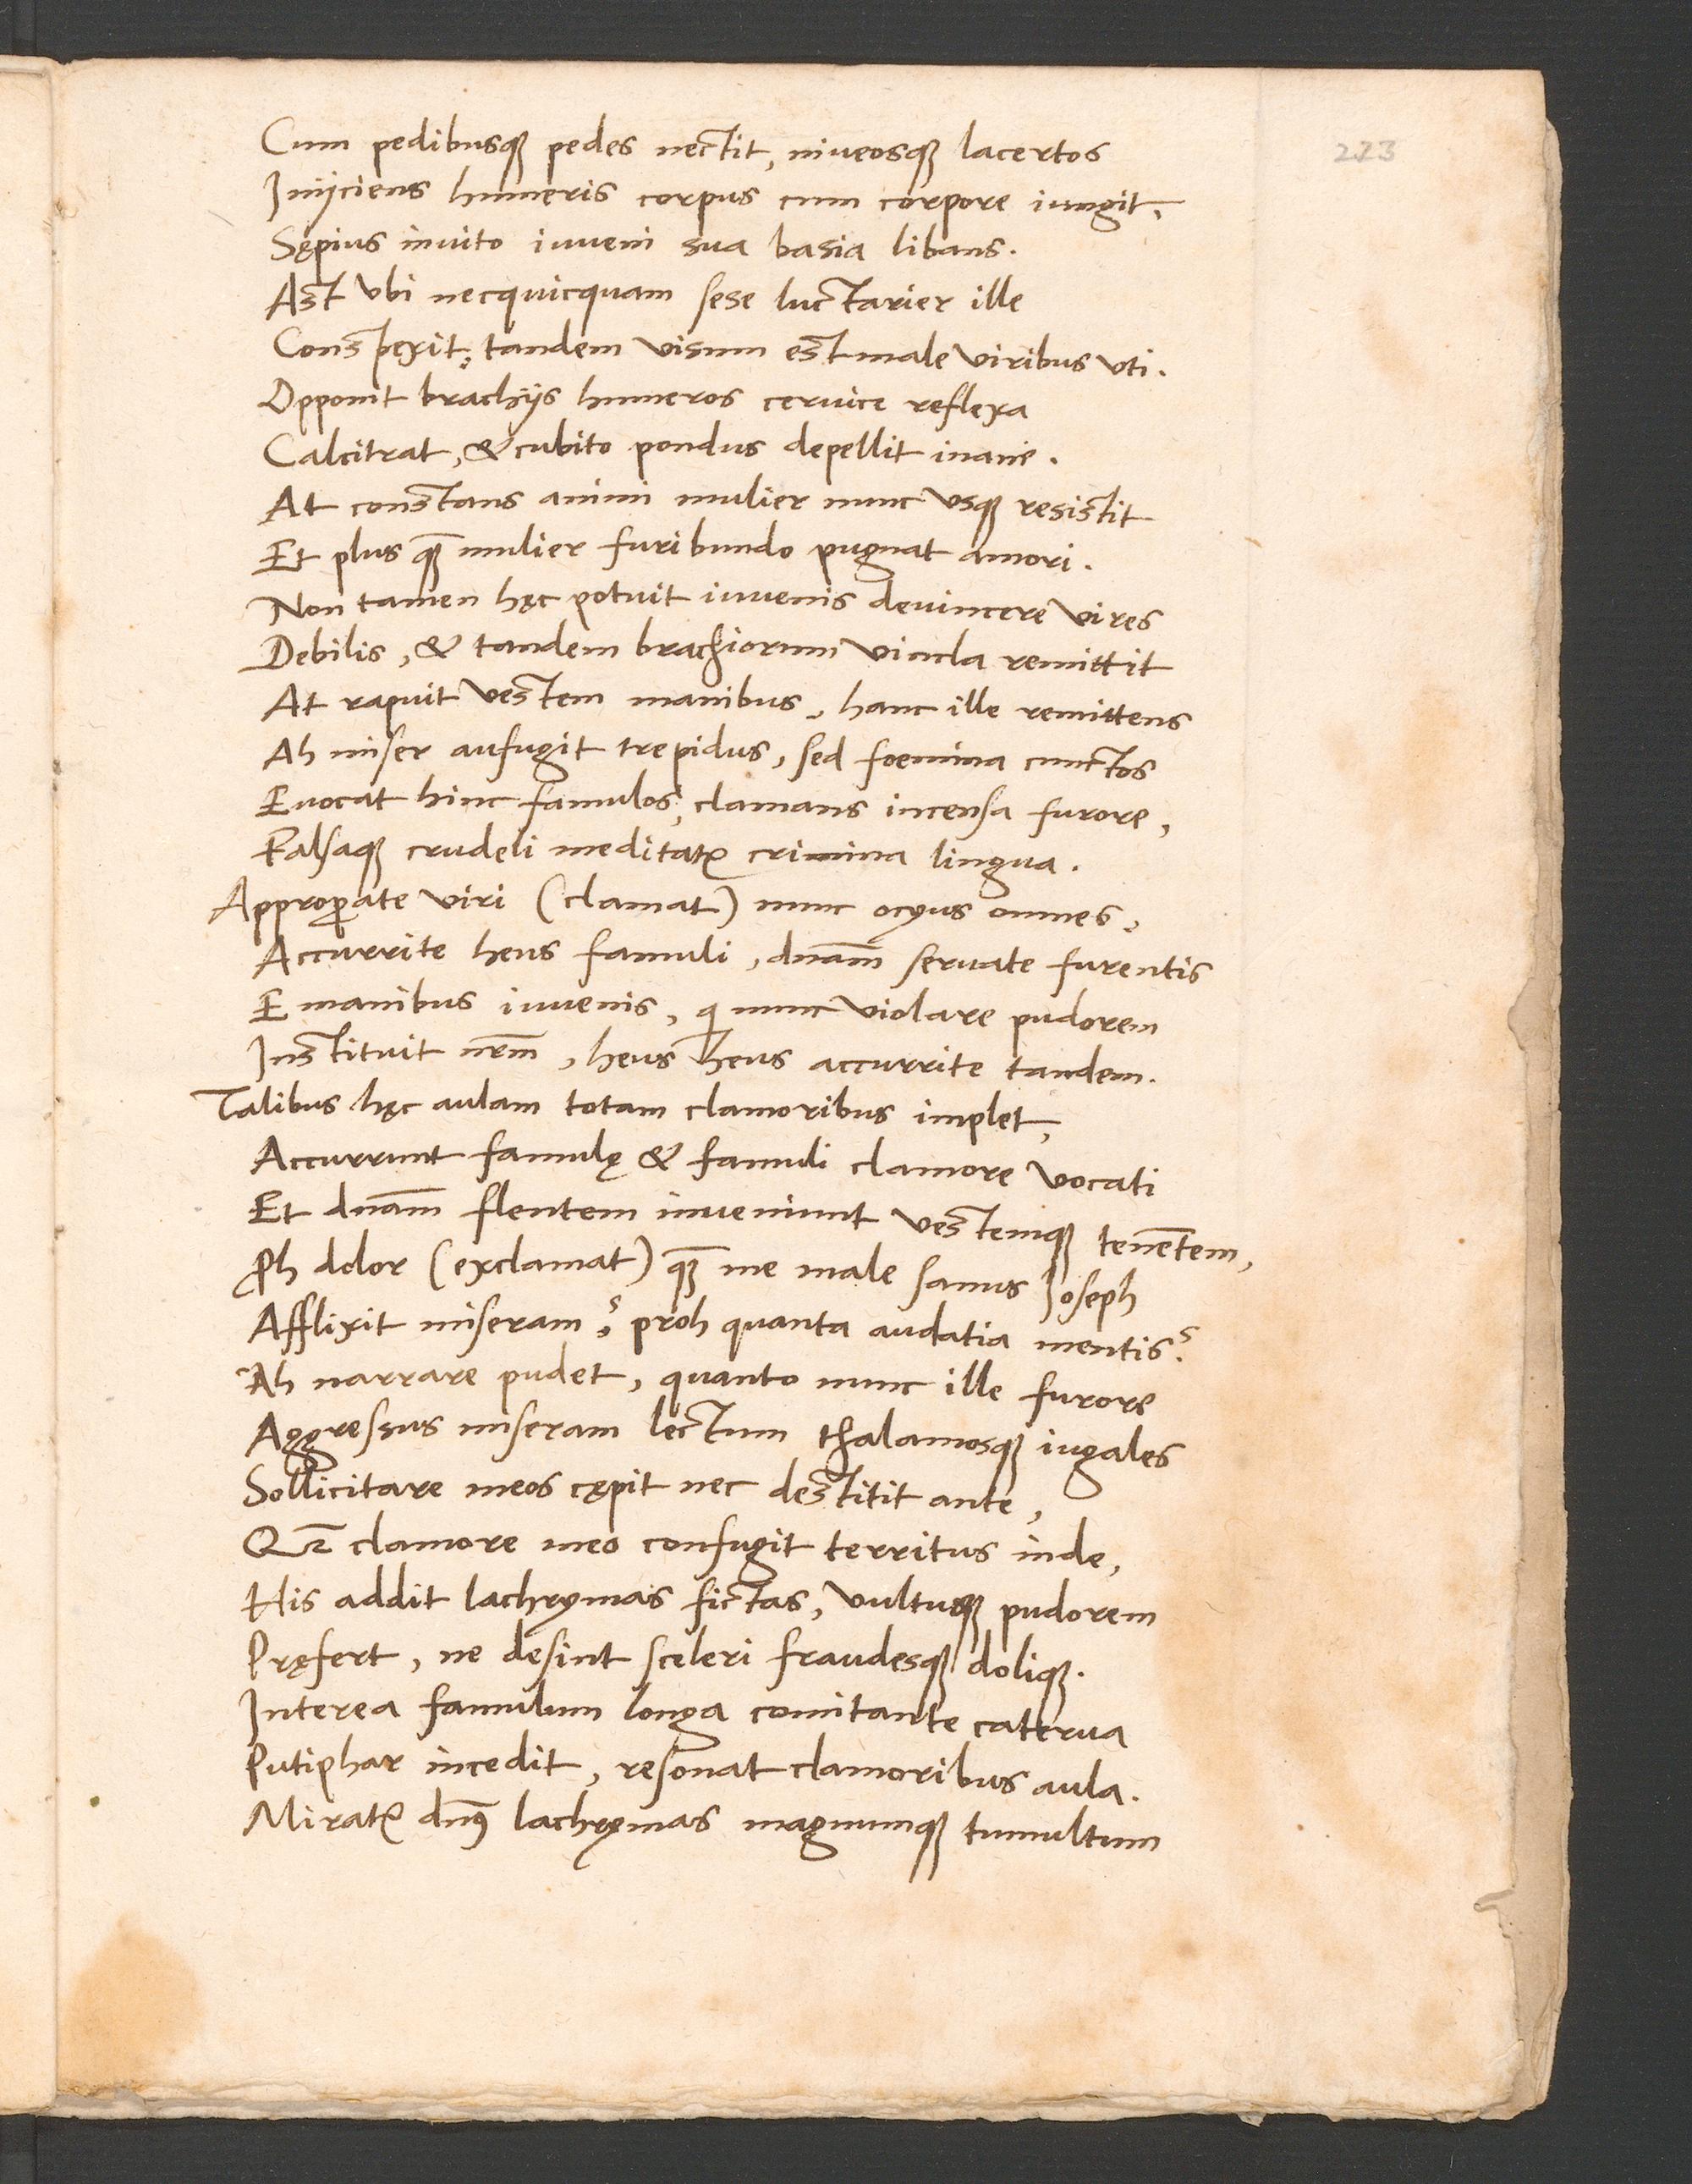 273
Cum pedibusque pedes nectit, niveosque lacertos
Iniiciens humeris corpus cum corpore iungit,
Sępius invito iuveni sua basia libans.
Ast ubi necquicquam sese luctarier ille
Conspexit, tandem visum est male viribus uti.
Opponit brachijs humeros cervice reflexa
Calcitrat, & cubito pondus depellit inane.
At constans animi mulier nunc usque resistit
Et plus quam mulier furibundo pugnat amori.
Non tamen hęc potuit iuvenis devincere vires
Debilis, & tandem brachiorum vincla remittit
At rapuit vestem manibus, hanc ille remittens
Ah miser aufugit trepidus, sed foemina cunctos
Evocat hinc famulos, clamans incensa furore,
Falsaque crudeli meditatur crimina lingua.
Approperate viri (clamat) nunc ocyus omnes,
Accurrite heus famuli, dnam̄ servate furentis
E manibus iuvenis, qi nunc violare pudorem
Instituit nrm̄, heus heus accurrite tandem.
Talibus hęc aulam totam clamoribus implet,
Accurrunt famulę & famuli clamore vocati
Et dnam̄ flentem inveniunt vestemque tenētem,
Proh dolor (exclamat) quam me male sanus Ioseph
Afflixit miseram? proh quanta audatia mentis?
Ah narrare pudet, quanto nunc ille furore
Aggressus miseram lectum thalamosque iugales
Sollicitare meos cępit nec destitit ante,
Quam clamore meo confugit territus inde,
His addit lachrymas fictas, vultuque pudorem
Pręfert, ne desint sceleri fraudesque dolique.
Interea famulum longa comitante caterva
Putiphar incedit, resonat clamoribus aula.
Miratur dnus lachrymas magnumque tumultum